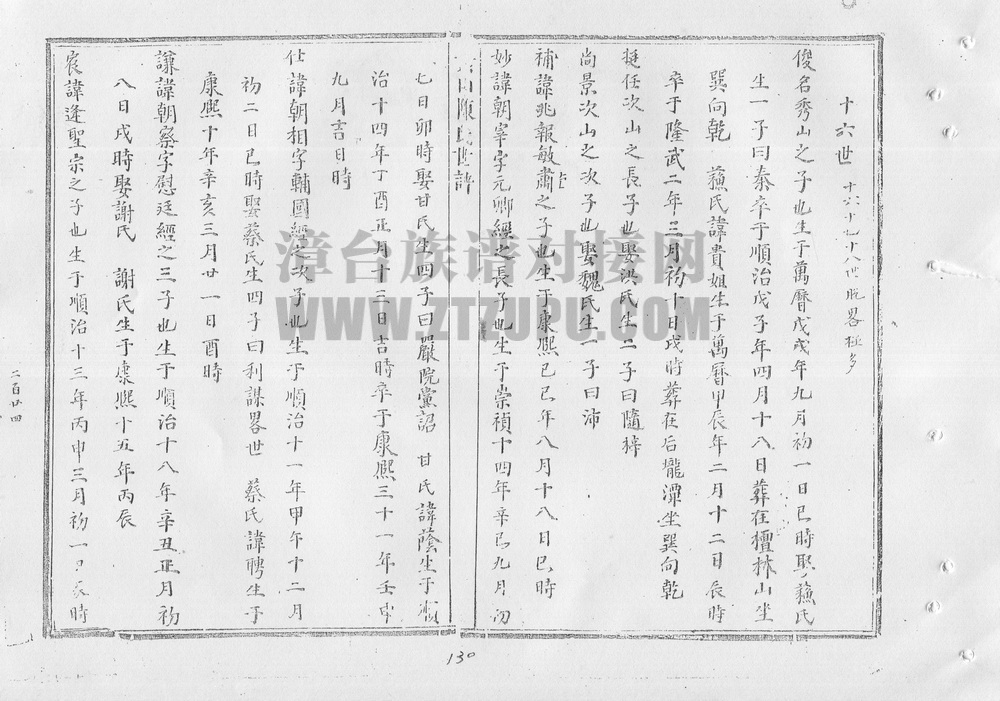 十六世 十六十七十八世脱畧極多
俊名秀山之子也生于萬曆戊戌年九月初一日巳時娶蘓氏
生一子曰泰卒于順治戊子年四月十八日葬在檀林山坐
巽向乾 蘓氏諱貴姐生于萬曆甲辰年二月十二日辰時
卒于隆武二年三月初十日戌時葬在后壠潭坐巽向乾
挺任次山之長子也娶洪氏生二子曰隨
尚景次山之次子也娶魏氏生一子曰沛
補諱兆報敏肅之子也生于康熙己巳年八月十八日巳時
妙諱朝宰字元卿經之長子也生于崇禎十四年辛巳九月初
陳氏世譜
七日卯時娶甘氏生四子曰嚴院黨詔 甘氏諱蔭生于順
治十四年丁酉正月十三日吉時卒于康熙三十一年壬申
九月吉日時
仕諱朝相字輔國經之次子也生于順治十一年甲午十二月
初二日巳時娶蔡氏生四子曰利謀畧世 蔡氏諱聘生于
康熙十年辛亥三月廿一日酉時
謙諱朝察字慰廷經之三子也生于順治十八年辛丑正月初
八日戌時娶謝氏 謝氏生于康熙十五年丙辰
宸諱逢聖宗之子也生于順治十三年丙申三月初一日辰時
二百廿四
130
漳台族谱对接网
WWW.ZTZUPU.COM